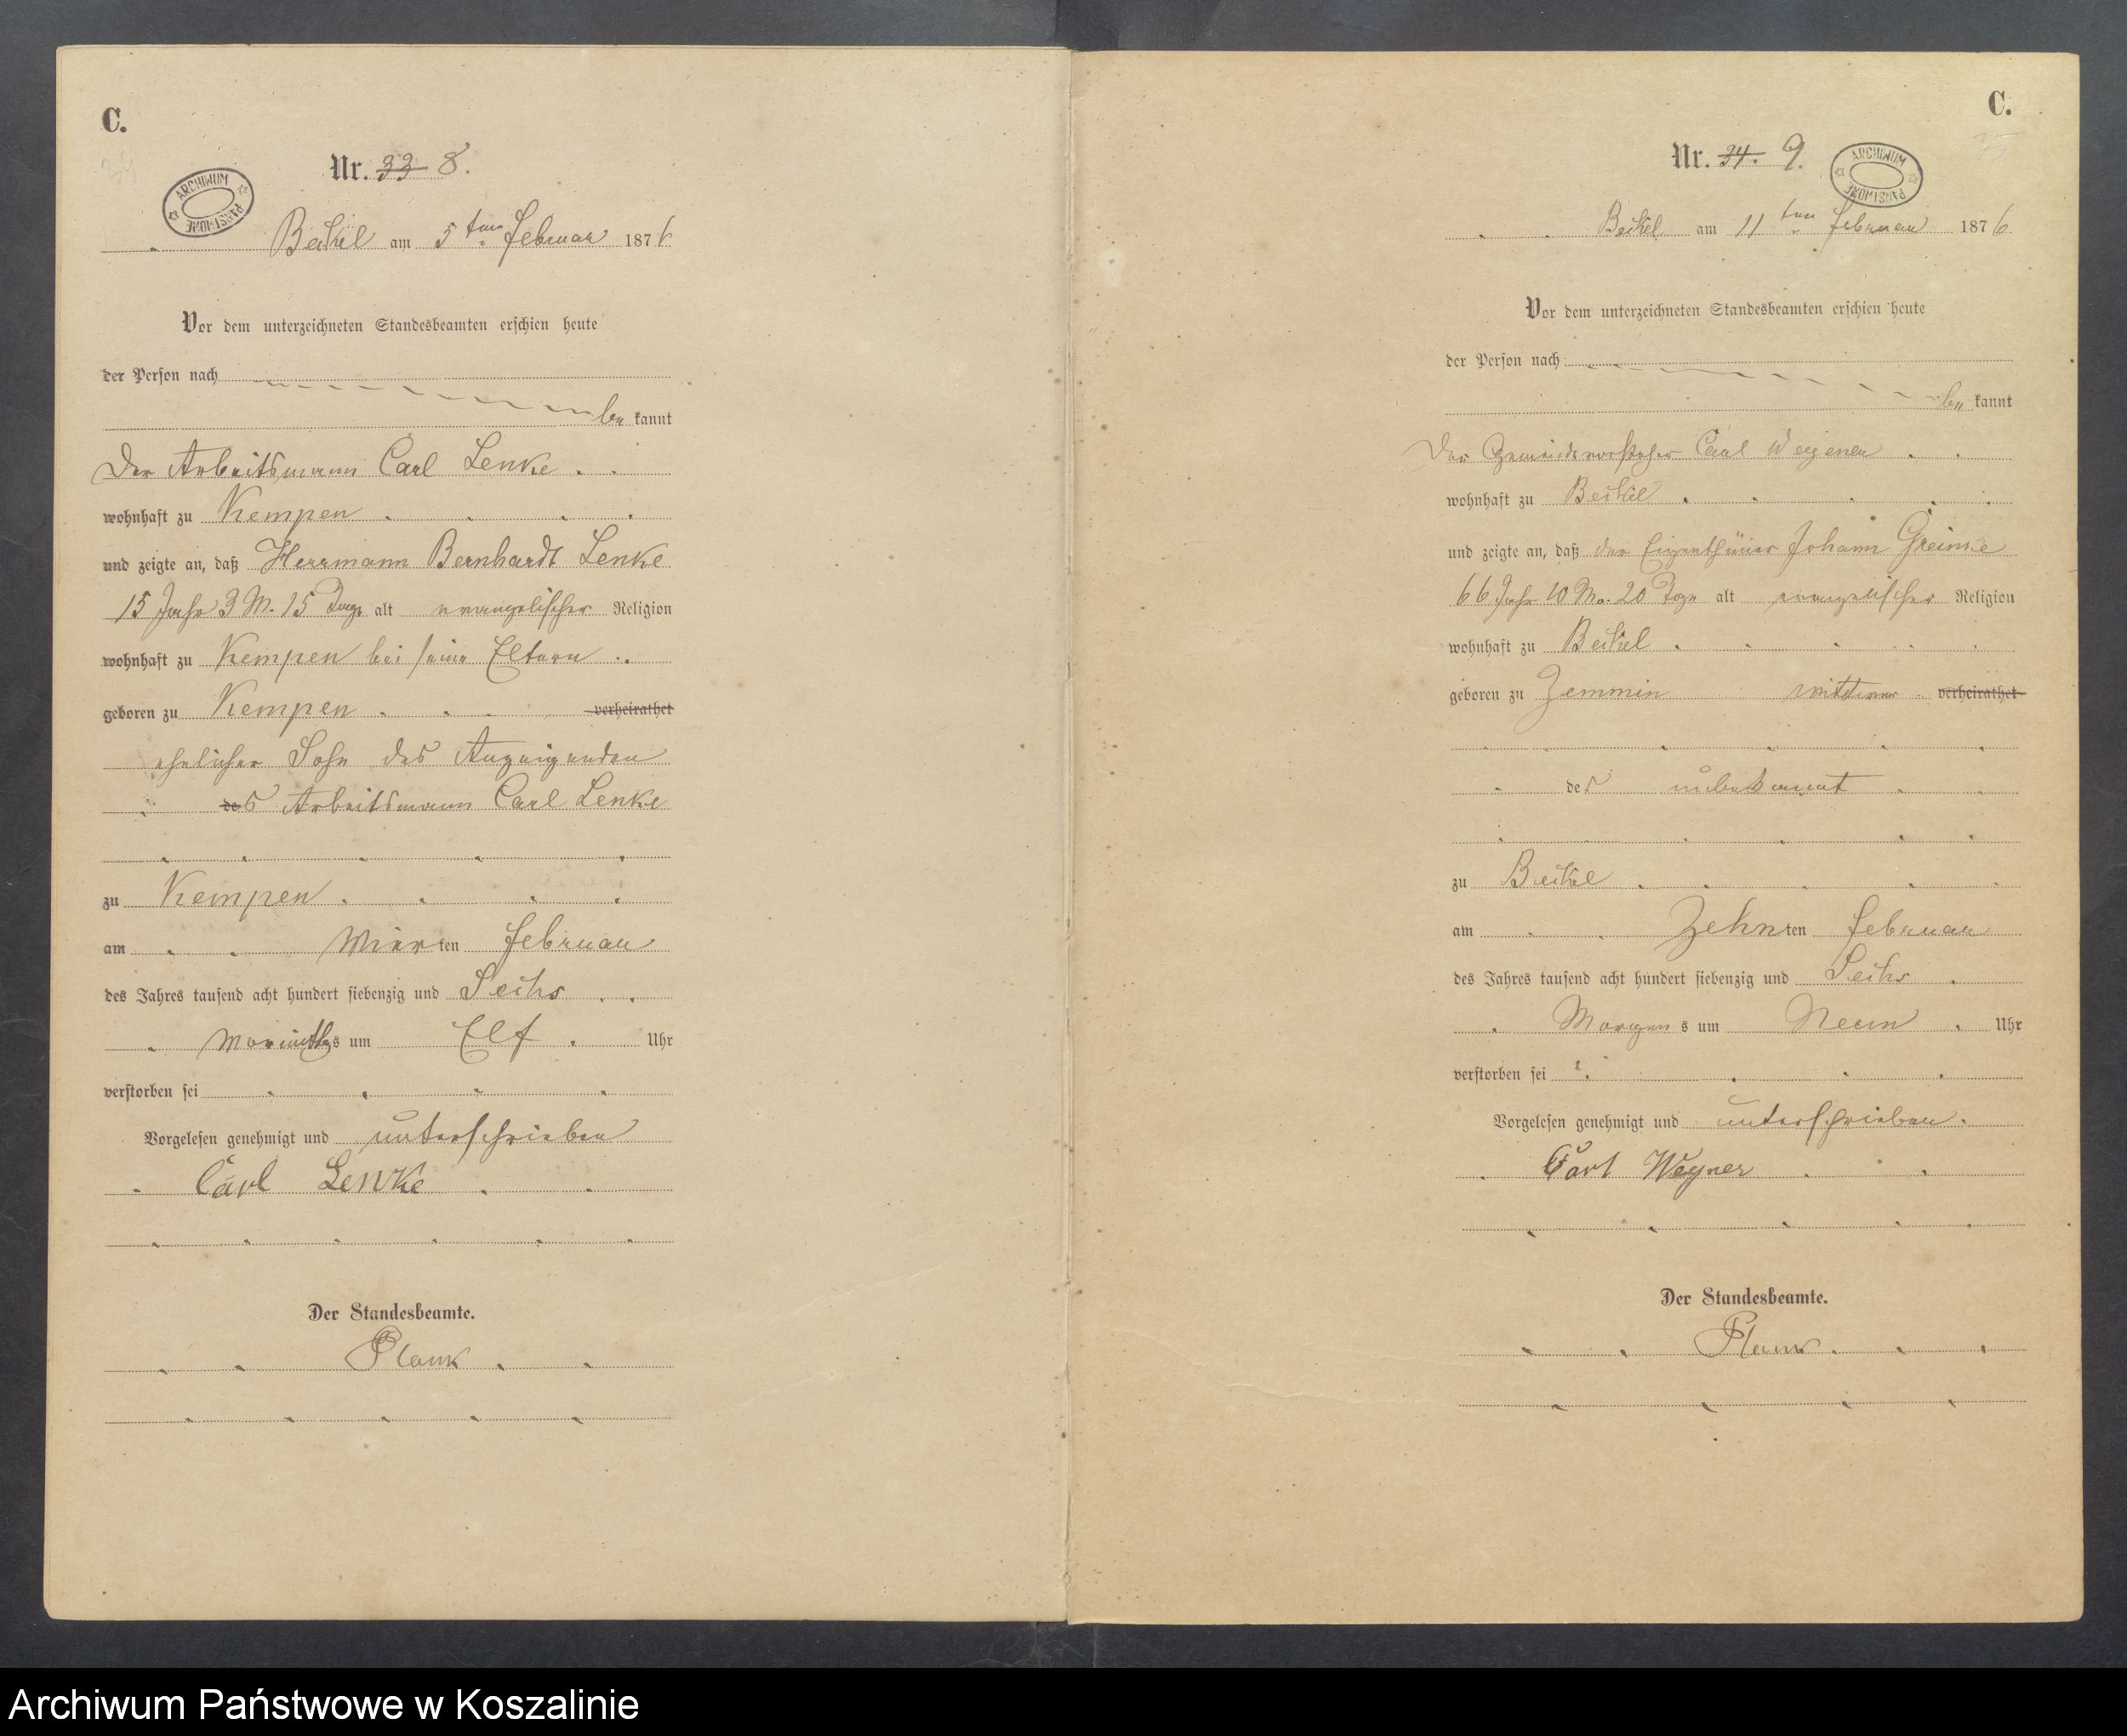 C.
Nr. 33 8.
ARCHIWUM PAŃSTWOWE
Beckel am 5ten Februar 1876
Vor dem unterzeichneten Standesbeamten erschien heute
der Person nach
be kannt
Der Arbeitsmann Carl Lenke
wohnhaft zu Kempen
und zeigte an, daß Herrmann Bernhardt Lenke
15 Jahr 3 M. 15 Tage alt evangelischer Religion
wohnhaft zu Kempen bei seine Eltern
geboren zu Kempen verheirathet
ehelicher Sohn des Anzeigenden
des Arbeitsmann Carl Lenke
zu Kempen
am Vierten Februar
des Jahres tausend acht hundert siebenzig und Sechs
Vormittags um Elf Uhr
verstorben sei
Vorgelesen genehmigt und unterschrieben
Carl Lenke
Der Standesbeamte.
Plank
C.
35
Nr. 34. 9.
ARCHIWUM PAŃSTWOWE
Beckel am 11ten Februar 1876
Vor dem unterzeichneten Standesbeamten erschien heute
der Person nach
be kannt
Der Gemeindevorsteher Carl Wegener
wohnhaft zu Beckel
und zeigte an, daß der Eigenthümer Johann Greinke
66 Jahr 10 Mo. 20 Tage alt evangelischer Religion
wohnhaft zu Beckel
geboren zu Zemmin verheirathet
des unbekannt
zu Beckel
am Zehnten Februar
des Jahres tausend acht hundert siebenzig und Sechs
Morgens um Neun Uhr
verstorben sei
Vorgelesen genehmigt und unterschrieben.
Carl Wegner
Der Standesbeamte.
Plank
Archiwum Państwowe w Koszalinie